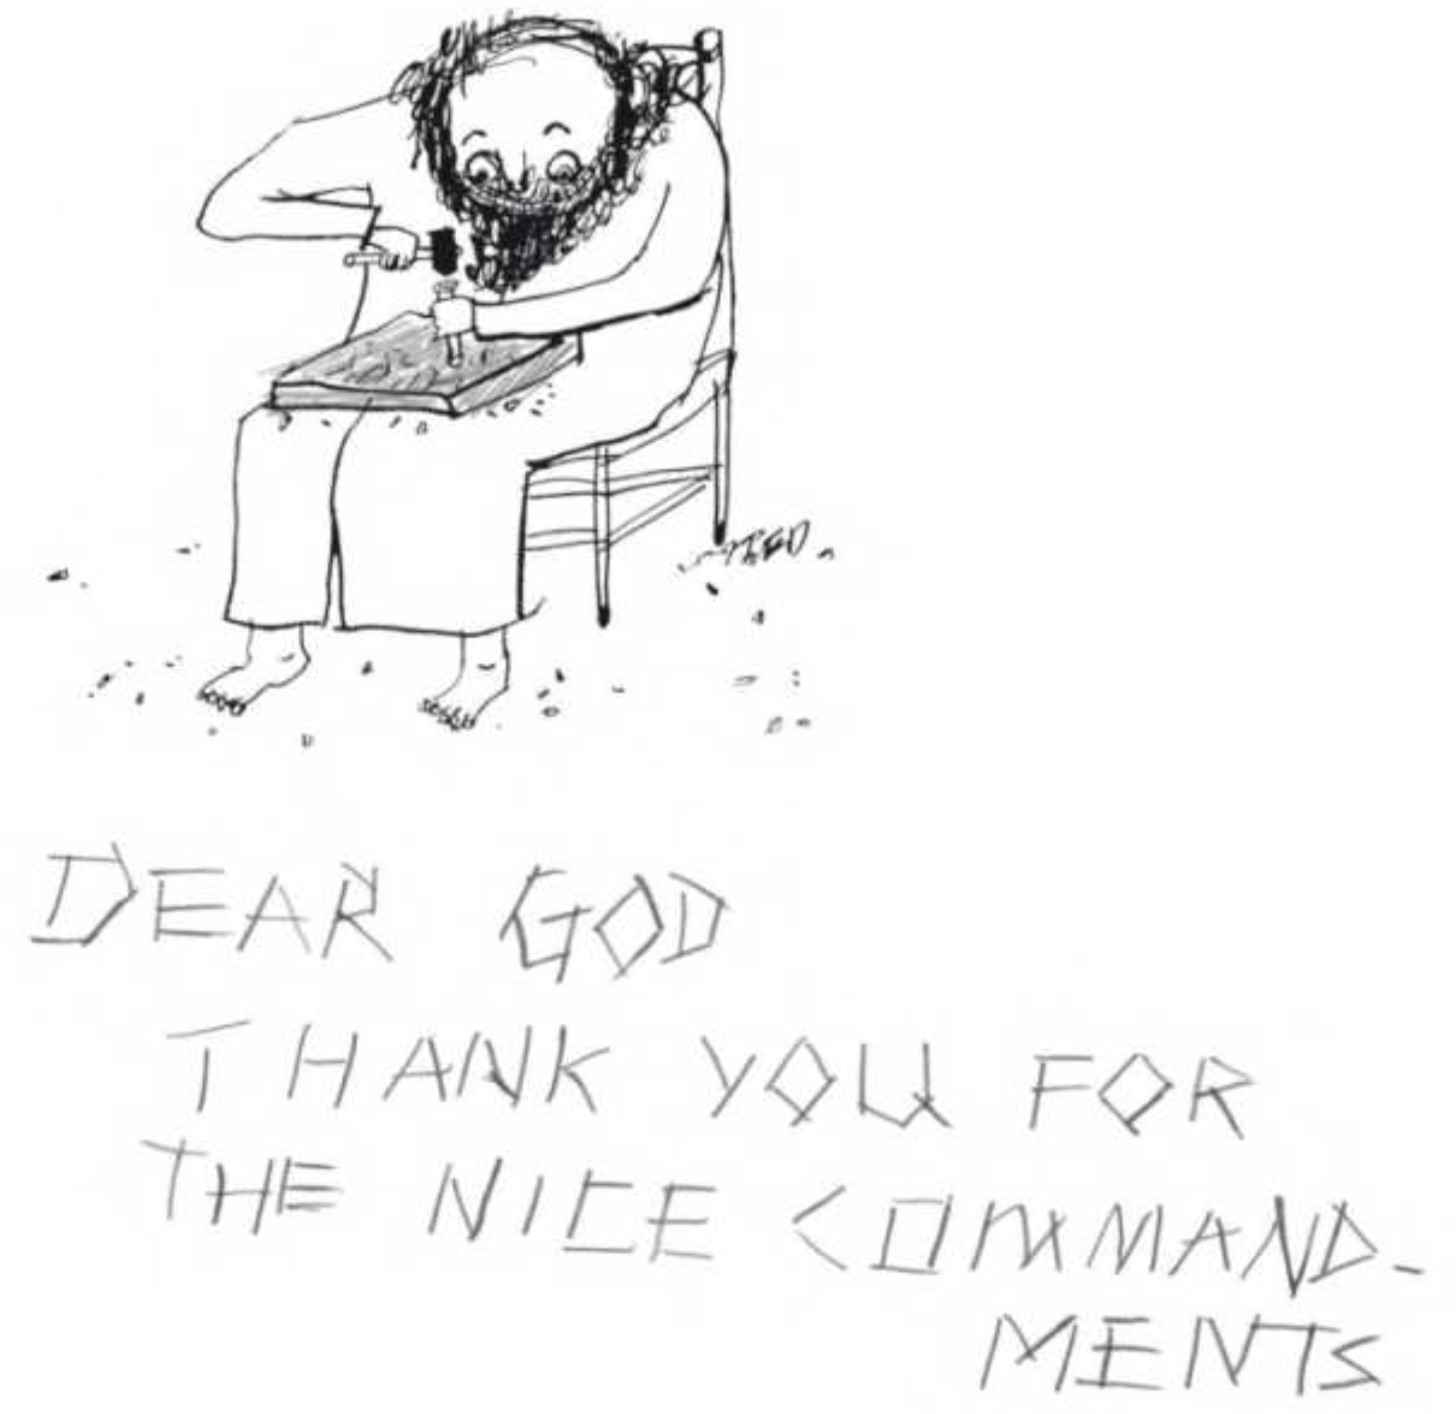 DEAR GOD
THANK YOU FOR
THE NICE COMMAND-
MENTS